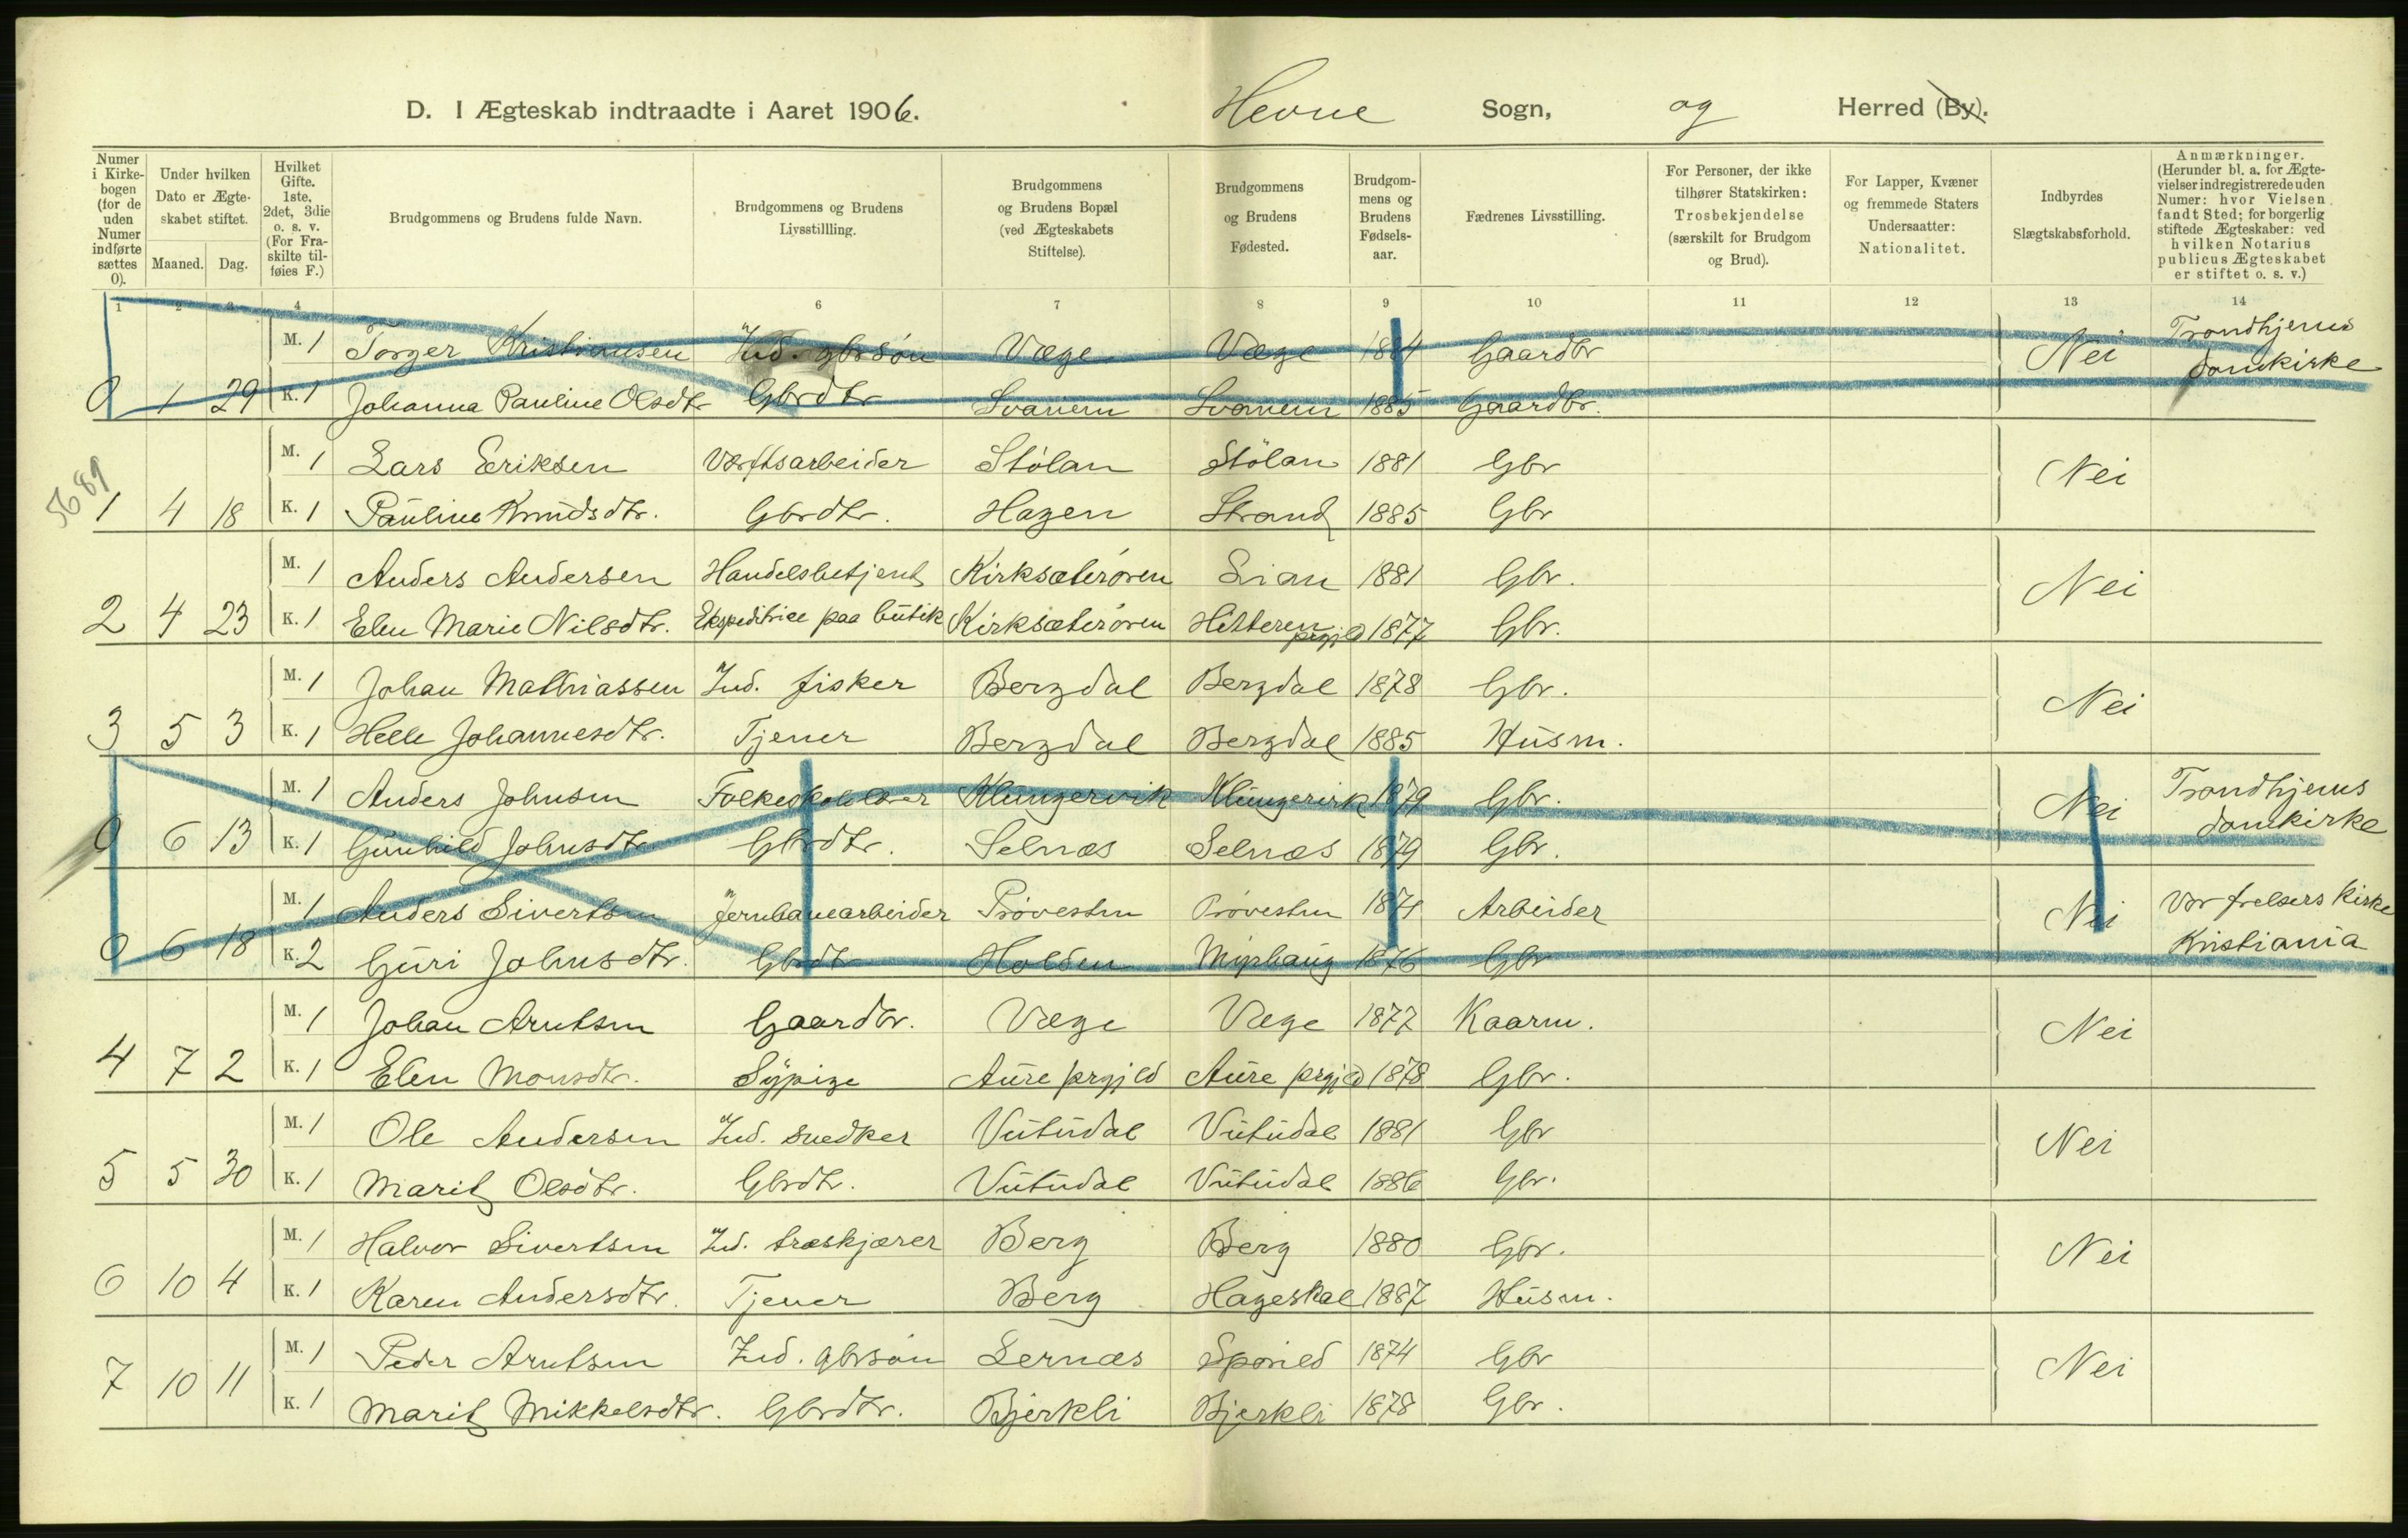 D. I Ægteskab indtraadte i Aaret 1906. Hevne Sogn, og Herred (By).
Numer i Kirkebogen (for de uden Numer indførte sættes 0).
Under hvilken Dato er Ægteskabet stiftet.
Maaned. Dag.
Hvilket Gifte. 1ste, 2det, 3die o. s. v. (For Fraskilte tilføies F.)
Brudgommens og Brudens fulde Navn.
Brudgommens og Brudens Livsstillling.
Brudgommens og Brudens Bopæl (ved Ægteskabets Stiftelse).
Brudgommens og Brudens Fødested.
Brudgommens og Brudens Fødselsaar.
Fædrenes Livsstilling.
For Personer, der ikke tilhører Statskirken: Trosbekjendelse (særskilt for Brudgom og Brud).
For Lapper, Kvæner og fremmede Staters Undersaatter: Nationalitet.
Indbyrdes Slægtskabsforhold.
Anmærkninger. (Herunder bl. a. for Ægtevielser indregistrerede uden Numer: hvor Vielsen fandt Sted; for borgerlig stiftede Ægteskaber: ved hvilken Notarius publicus Ægteskabet er stiftet o. s. v.)
1 2 3 4 6 7 8 9 10 11 12 13 14
M. 1 Torger Kristiansen Ind. gbrsøn Væge Væge 1884 Gaardbr Nei Trondhjems
0 1 29 K. 1 Johanna Pauline Olsdtr Gbrdtr Svanem Svanem 1885 Gaardbr. domkirke
M. 1 Lars Eriksen Værftsarbeider Stölan Stölan 1881 Gbr Nei
5689
1 4 18 K. 1 Pauline Knudsdtr. Gbrdtr. Hagen Strand 1885 Gbr
M. 1 Anders Andersen Handelsbetjent Kirksæterøren Lian 1881 Gbr. Nei
2 4 23 K. 1 Elen Marie Nilsdtr. Ekspeditrice paa butik Kirksæterøren Hitteren prgjld 1877 Gbr.
M. 1 Johan Mathiassen Ind. fisker Bergdal Bergdal 1878 Gbr. Nei
3 5 3 K. 1 Helle Johannesdtr. Tjener Bergdal Bergdal 1885 Husm.
M. 1 Anders Johnsen Folkeskolelærer Klungervik Klungervik 1879 Gbr. Nei Trondhjems
0 6 13 K. 1 Gunhild Johnsdtr Gbrdtr. Selnæs Selnæs 1879 Gbr. domkirke
M. 1 Anders Sivertsen Jernbanearbeider Prövesten Prövesten 1871 Arbeider Nei Vor frelsers kirke
0 6 18 K. 2 Guri Johnsdtr. Gbrdtr Holden 1876 Gbr Kristiania
M. 1 Johan Arntsen Gaardbr. Væge Væge 1877 Kaarm. Nei
4 7 2 K. 1 Elen Monsdtr. Sypige Aure prgjld Aure prgjld 1878 Gbr.
M. 1 Ole Andersen Ind. snedker Vutudal Vutudal 1881 Gbr Nei
5 5 30 K. 1 Marit Olsdtr. Gbrdtr. Vutudal Vutudal 1886 Gbr.
M. 1 Halvor Sivertsen Ind. træskjærer Berg Berg 1880 Gbr. Nei
6 10 4 K. 1 Karen Andersdtr. Tjener Berg Hageskal 1887 Husm.
M. 1 Peder Arntsen Ind. gbrsøn Lernæs Sporild 1874 Gbr Nei
7 10 11 K. 1 Marit Mikkelsdtr. Gbrdtr. Bjerkli Bjerkli 1878 Gbr.